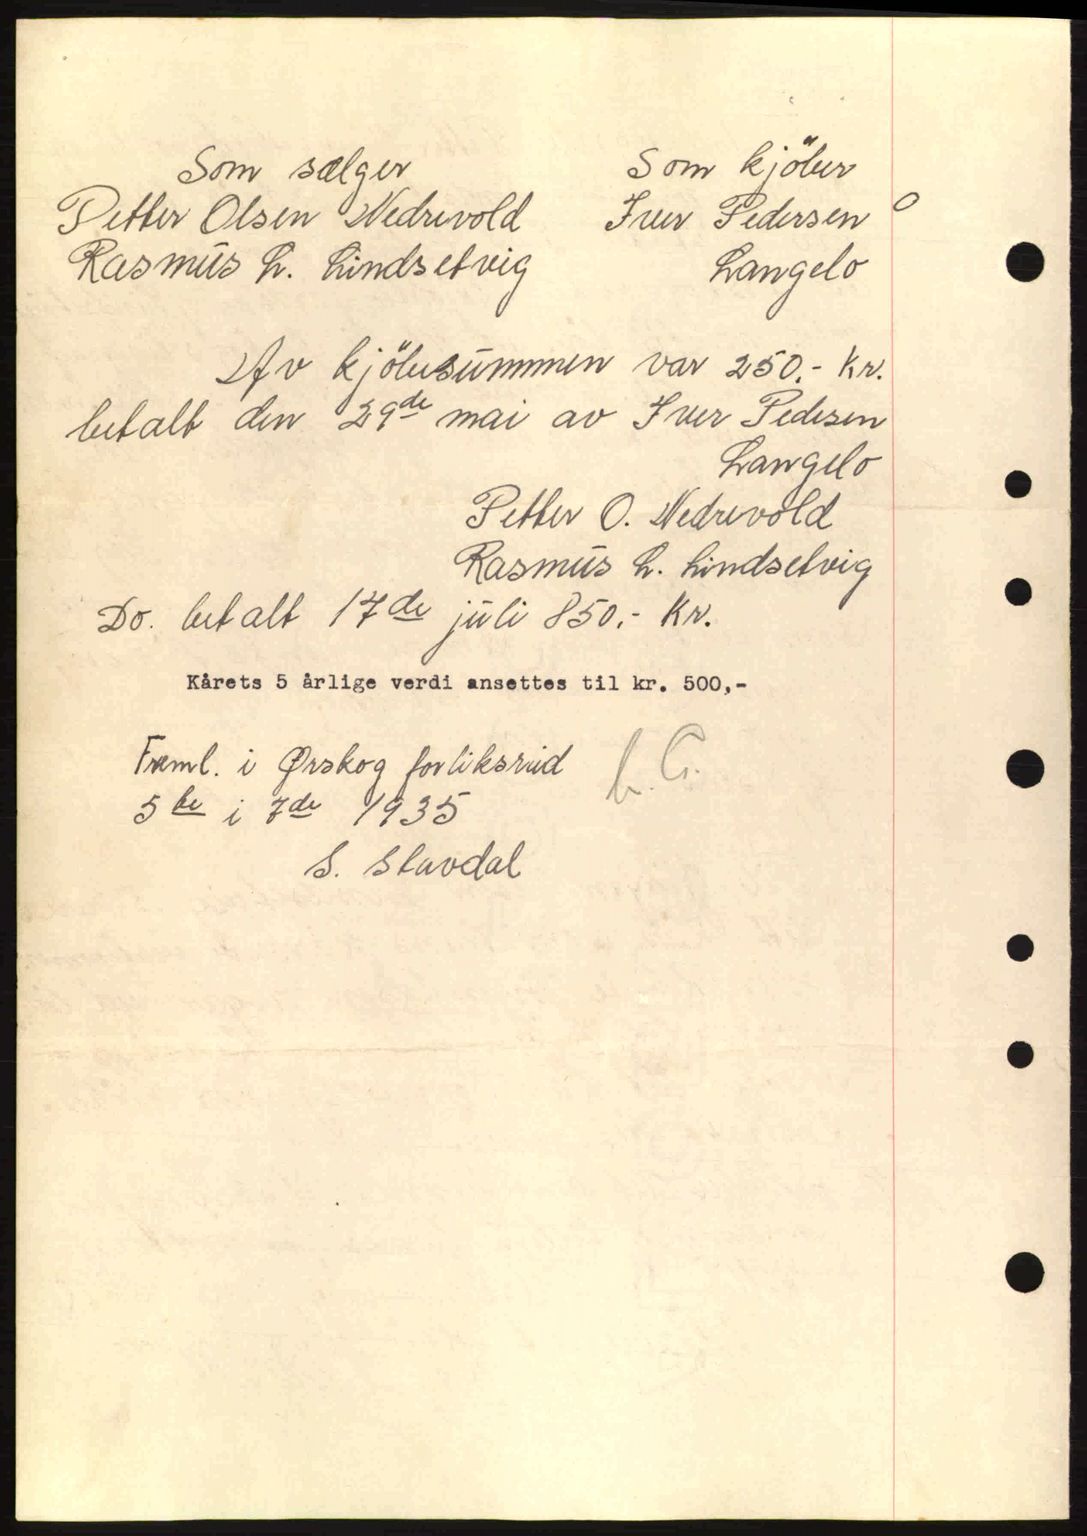 Som sælger
Petter Olsen Nedrevold
Rasmus L. Lindsetvig
Som kjöber
Iver Pedersen
Langelo
Av kjöbesummen var 250.- Kr.
betalt den 29de mai av Iver Pedersen
Langelo
Petter O. Nedrevold
Rasmus L. Lindsetvig
Do. betalt 17de juli 850.- Kr.
Kårets 5 årlige verdi ansettes til kr. 500,-
Freml. i Ørskog forliksråd
5te i 7de 1935
S. Stavdal